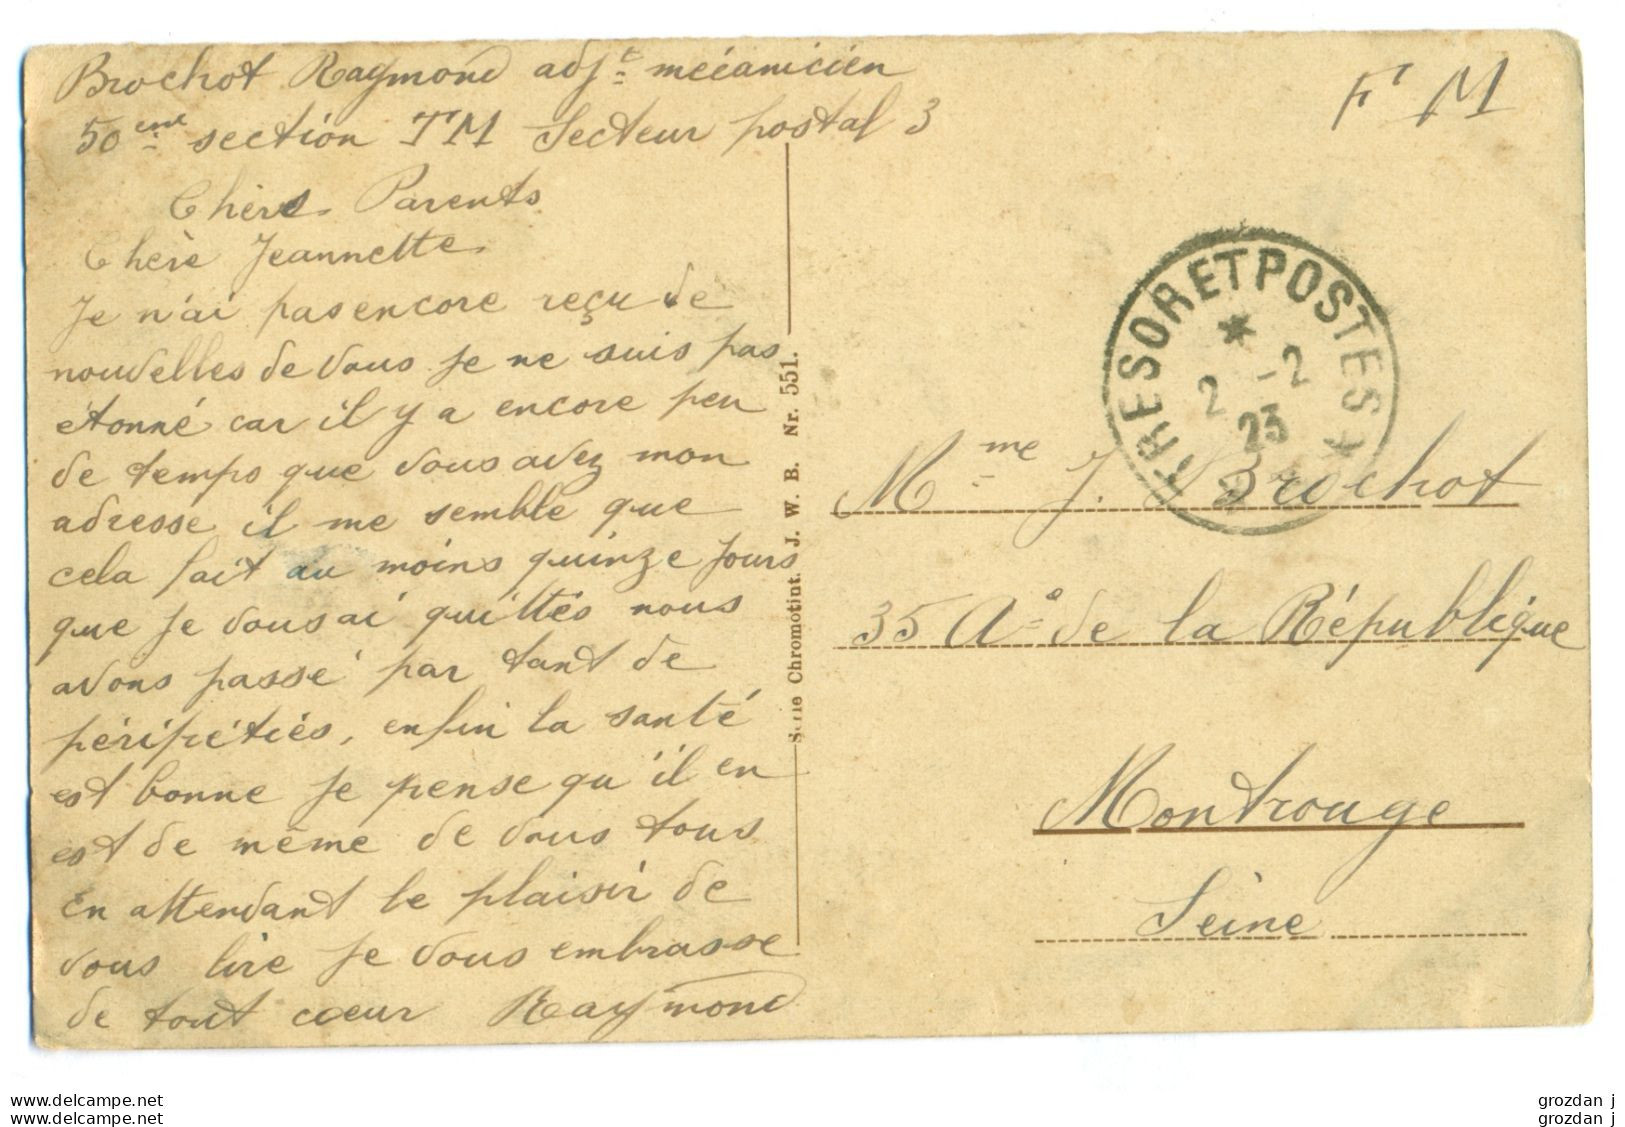 Brochot Raymond adjt mécanicien
50eme section TM Secteur postal 3
Chers Parents
Chère Jeannette
Je n'ai pas encore reçu de
nouvelles de vous je ne suis pas
étonné car il y a encore peu
de temps que vous avez mon
adresse il me semble que
cela fait au moins quinze jours
que je vous ai quittés nous
avons passé par tant de
péripéties, enfin la santé
est bonne je pense qu'il en
est de même de vous tous
En attendant le plaisir de
vous lire je vous embrasse
de tout cœur Raymond
Serie Chromotint. J. W. B. Nr. 551.
F M
TRESOR ET POSTES
2 -2
23
Mme J. Brochot
35 Ae de la République
Montrouge
Seine
www.delcampe.net
www.delcampe.net
grozdan j
grozdan j